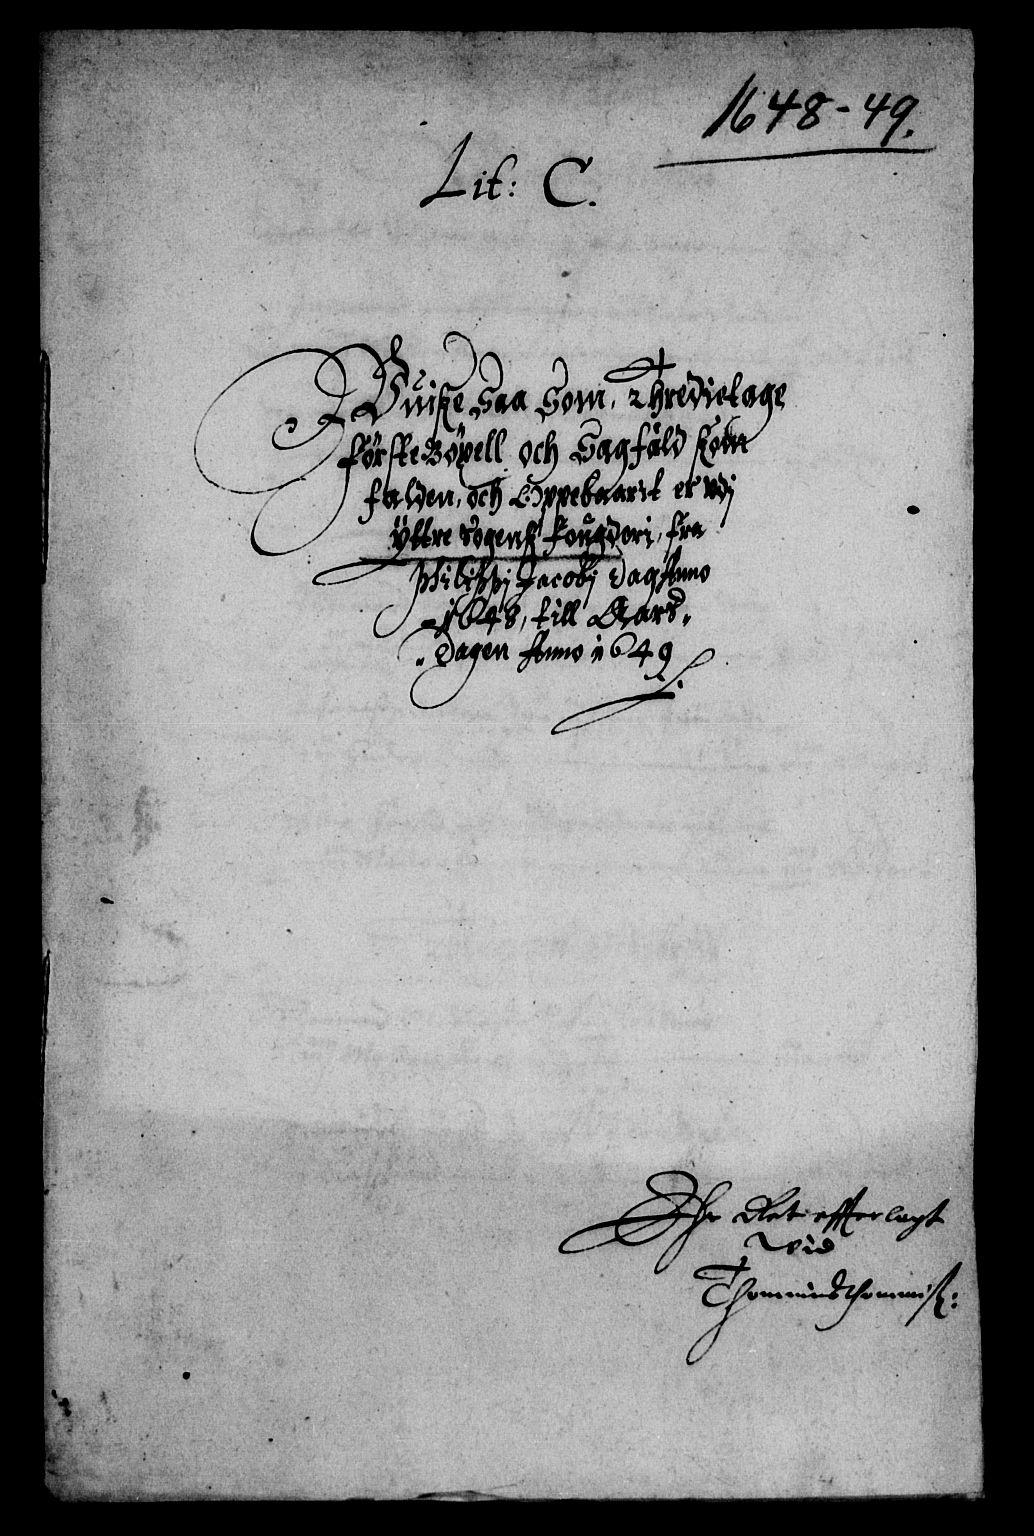 1648-49.
Lit: C.
Wuiße Saa Som, Thredietage
förste Böxell och Sagfald som
falden, och Oppebaarit er vdj
Yttre Sogens fougderi, fra
Philippi Jacobj Dag Anno
1648, till Aars
Dagen Anno 1649
Ehr Ret efterlagt
Wid